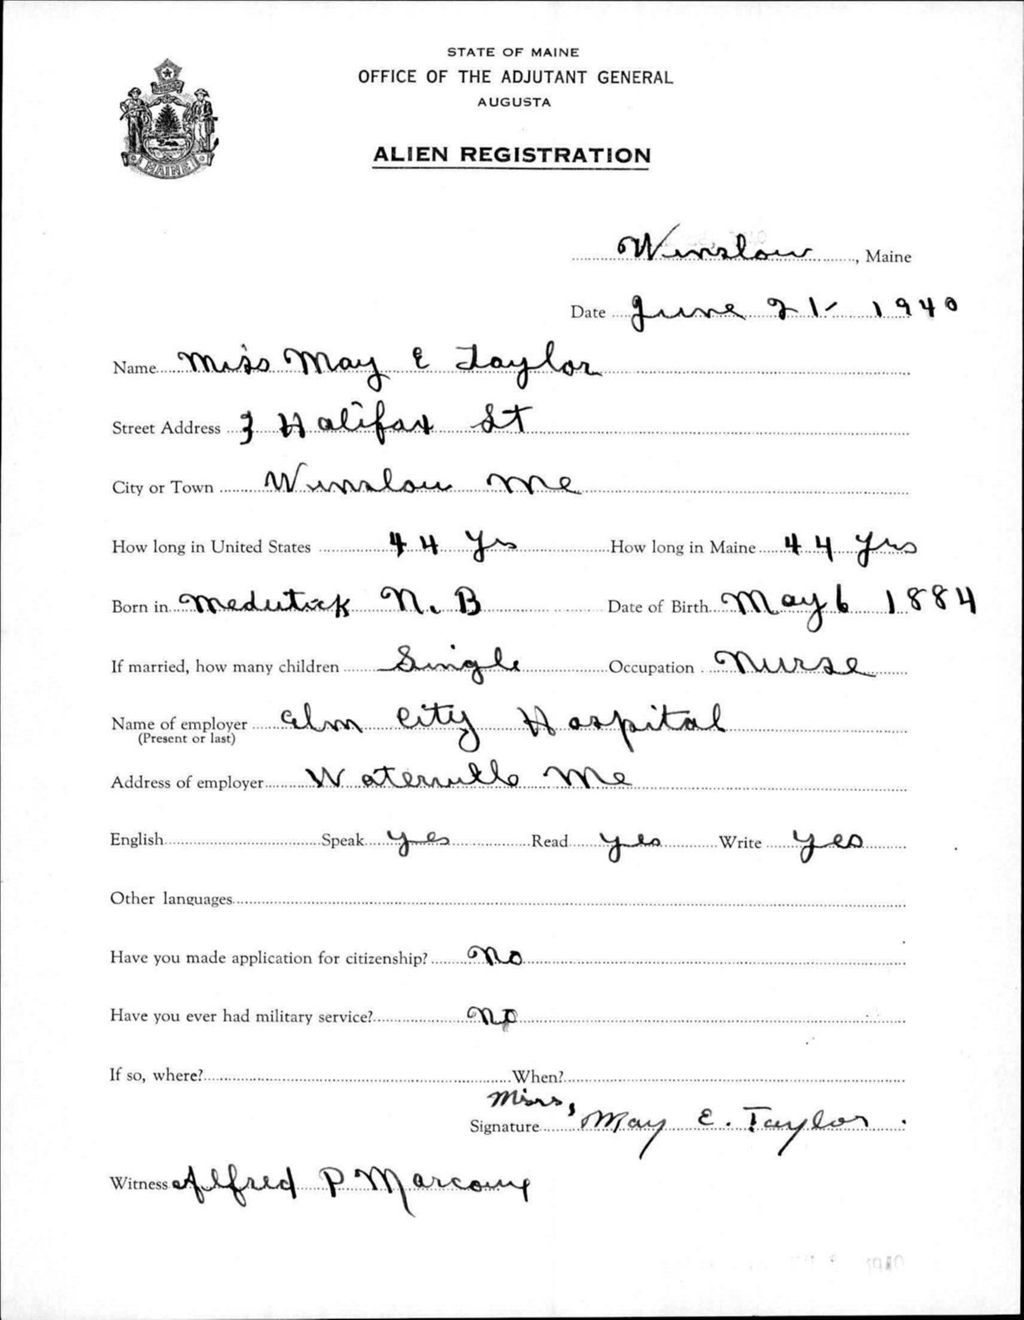 STATE OF MAINE
OFFICE OF THE ADJUTANT GENERAL
AUGUSTA
ALIEN REGISTRATION
MAINE
Winslow, Maine
Date June 21 - 1940
Name Miss May E Taylor
Street Address 3 Halifax St
City or Town Winslow Me
How long in United States 44 Yrs How long in Maine 44 Yrs
Born in Meductick N. B Date of Birth May 6 1884
If married, how many children Single Occupation Nurse
Name of employer Elm City Hospital
(Present or last)
Address of employer Waterville Me
English Speak yes Read yes Write yes
Other languages
Have you made application for citizenship? No
Have you ever had military service? No
If so, where? When?
Miss,
Signature May E. Taylor.
Witness Alfred P Marcoux